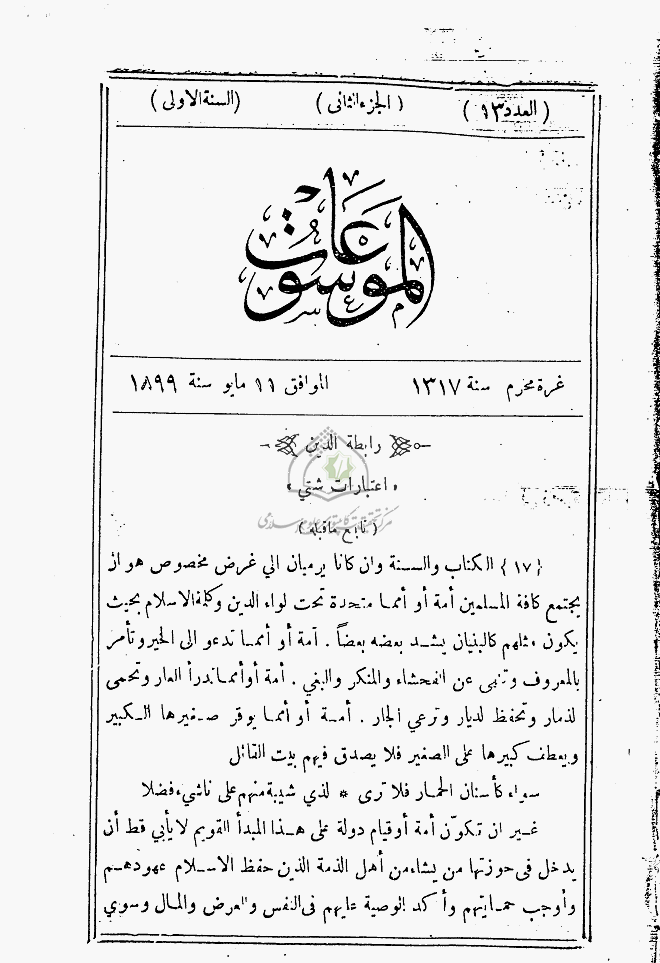 ( العدد ١٣ ) ( الجزء الثانى ) ( السنة الاولى )
الموسوعات
غرة محرم سنة ١٣١٧ الموافق ١١ مايو سنة ١٨٩٩
رابطة الدين
« اعتبارات شتي »
( تابع ماقبله )
{ ١٧ } الكتاب والسنة وان كانا يرميان الي غرض مخصوص هو ان
يجتمع كافة المسلمين أمة أو أمما متحدة تحت لواء الدين وكلمة الاسلام بحيث
يكون مثلهم كالبنيان يشد بعضه بعضاً . أمة أو أمما تدعو الى الخير وتأمر
بالمعروف وتنهى عن الفحشاء والمنكر والبغي . أمة أو أمما تدرأ العار وتحمى
الذمار وتحفظ الديار وترعي الجار . أمة أو أمما يوقر صغيرها الكبير
ويعطف كبيرها على الصغير فلا يصدق فيهم بيت القائل
سواء كأسنان الحمار فلا ترى * لذي شيبة منهم على ناشيء فضلا
غير ان تكوّن أمة أو قيام دولة على هذا المبدأ القويم لا يأبي قط أن
يدخل فى حوزتها من يشاء من أهل الذمة الذين حفظ الاسلام عهودهم
وأوجب حمايتهم وأكد الوصية عليهم فى النفس والعرض والمال وسوي